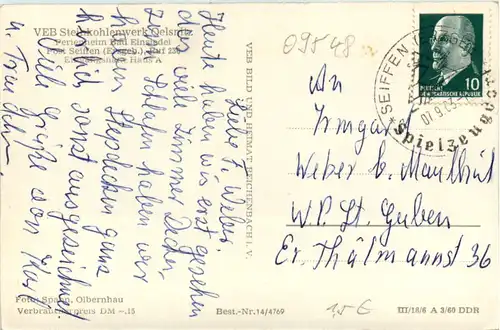 VEB Steinkohlenwerk Oelsnitz
Ferienheim Bad Einsiedel
Post Seiffen (Erzgeb.), Ruf 226
Haus A
Liebe F. Weber.
Heute haben wir erst gesehen
das viele Zimmer Decken
zum Schlafen haben wir
haben Steppdecken ganz
herrlich sonst ausgezeichnet
Viele Grüße von Kurt
u. Traudchen.
Foto: Spann, Olbernhau
Verbraucherpreis DM -,15
Best.-Nr. 14/4769
VEB BILD UND HEIMAT REICHENBACH i. V.
09548
SEIFFEN (ERZGEB)
07.9.63
Spielzeug
10
DEUTSCHE DEMOKRATISCHE REPUBLIK
An
Irmgart
Weber b. Maulhut
W.P. St. Guben
Er. Thälmannst 36
15 €
III/18/6 A 3/60 DDR